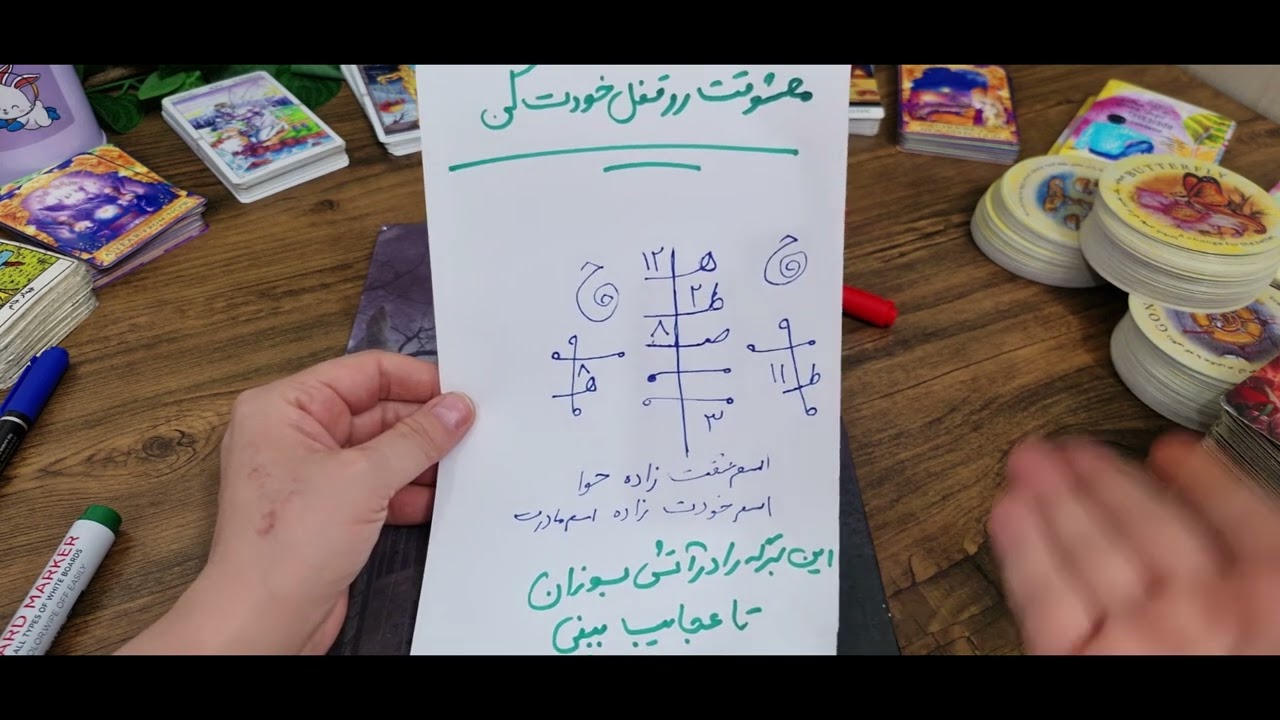 معشوقت رو قفل خودت کن
ح ۱۲ ھ ح
۲ ط
۸ صـ
۸ ۱۱ ط
ھ
۳
اسم عشقت زاده حوا
اسم خودت زاده اسم مادرت
این برگه را در آتش بسوزان
تا عجایب ببینی
BUTTERFLY
ARD MARKER
ALL TYPES OF WHITE BOARDS
COLOR WIPE OFF EASILY